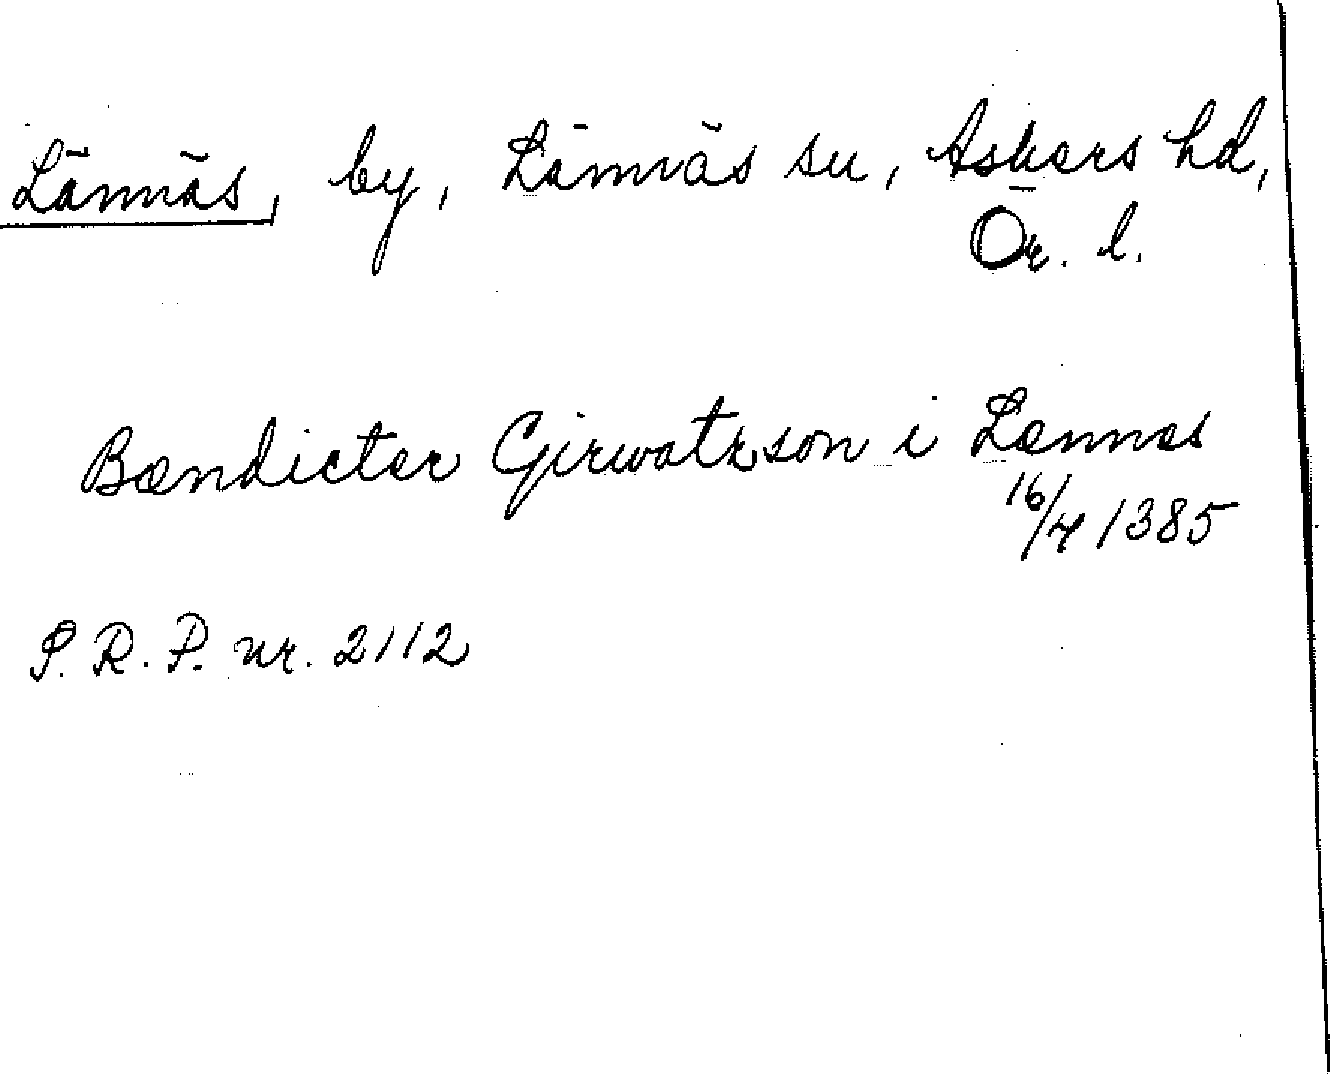 Lännäs, by, Lännäs sn, Askers hd,
Ör. l.
Bændicter Girwatzson i Lænnæs
16/4 1385
S. R. P. nr. 2112